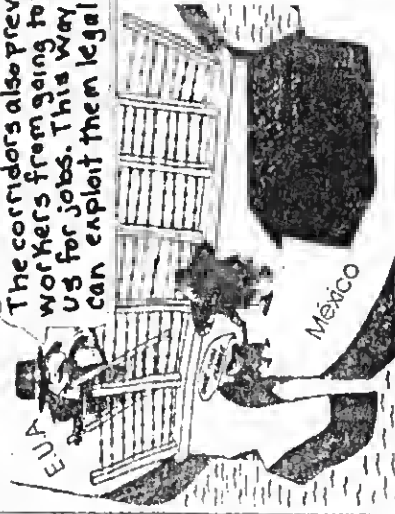 The corridors also prev
workers from going to
US for jobs. This way
can exploit them legal
EUA
México